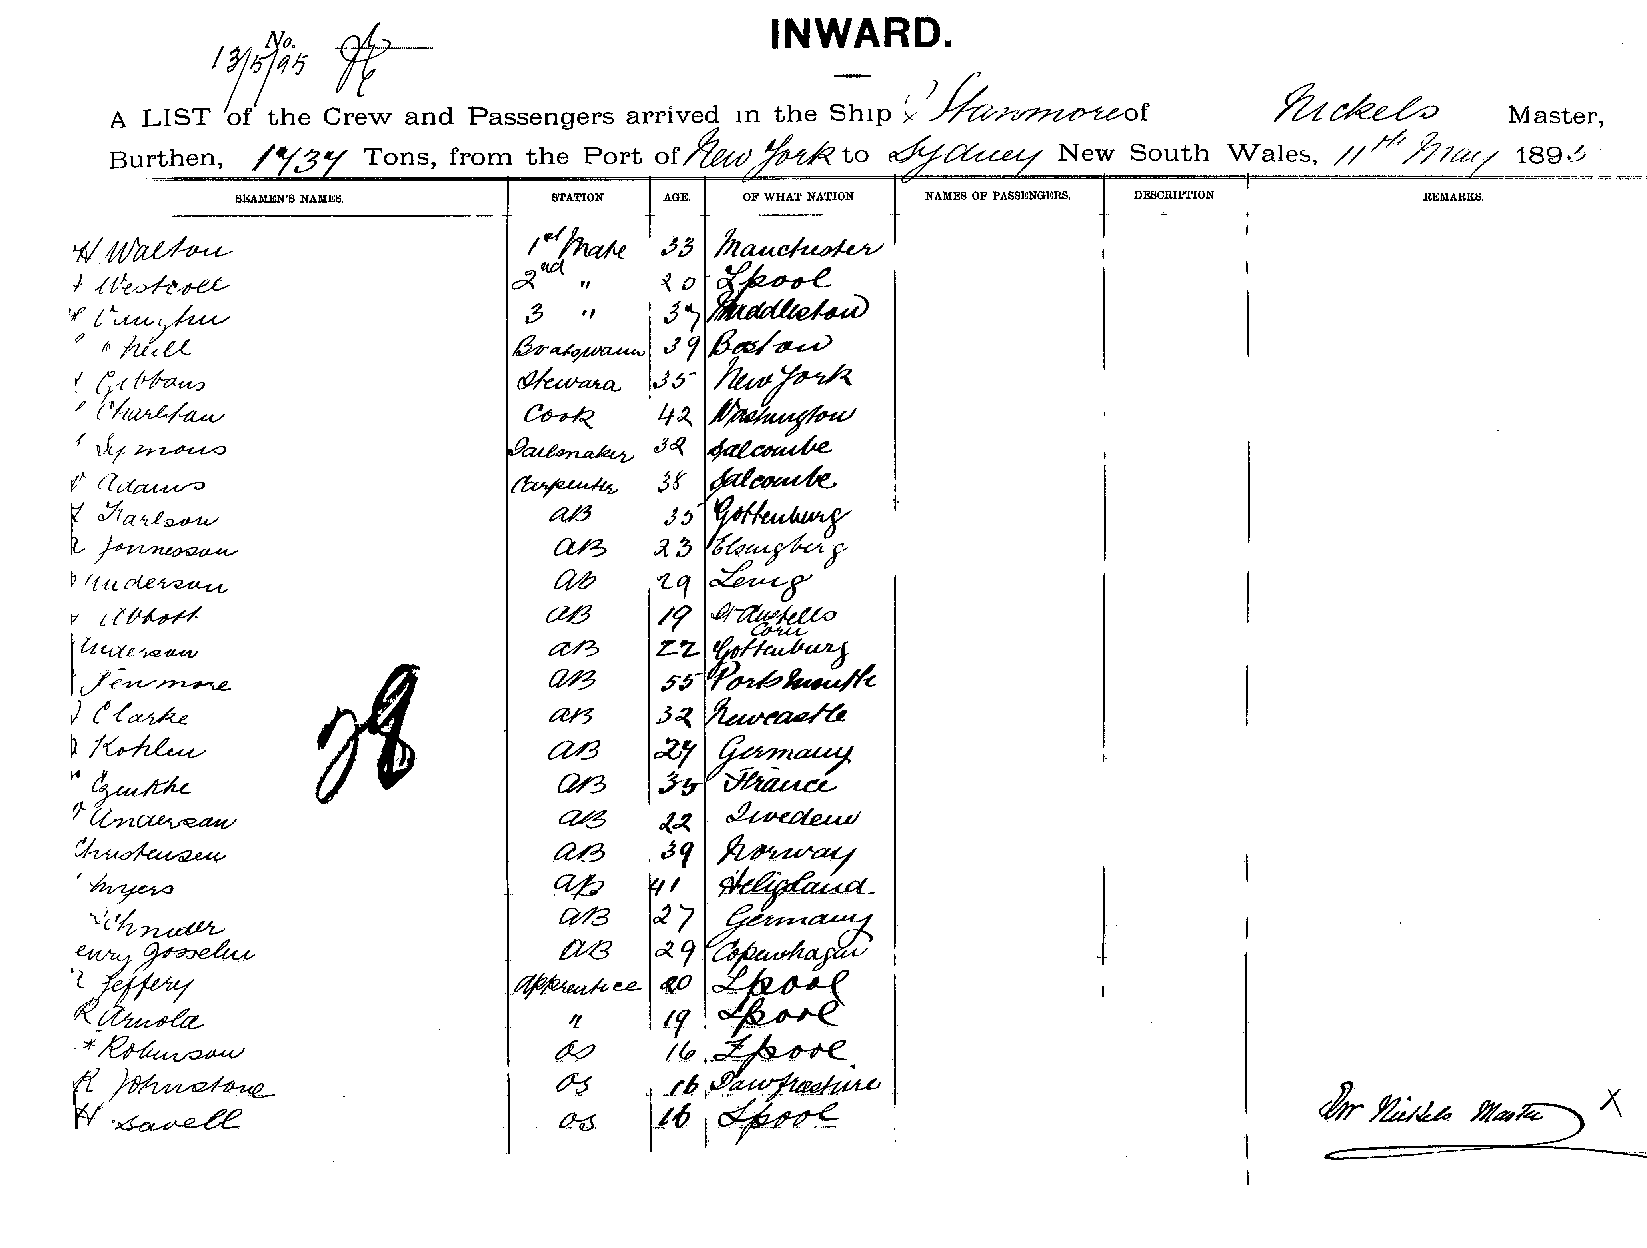 INWARD.
No.
13/5/95
A LIST of the Crew and Passengers arrived in the Ship Stanmore of Nickels Master,
Burthen, 1734 Tons, from the Port of New York to Sydney New South Wales, 11th May 1895
SEAMEN'S NAMES. STATION AGE. OF WHAT NATION NAMES OF PASSENGERS. DESCRIPTION REMARKS.
H Walton 1st Mate 33 Manchester
Westcott 2nd " 20 Lpool
3 " 37 Middleston
Neill Boatswain 39 Boston
Gibbons Steward 35 New York
Charlton Cook 42 Washington
Symons Sailmaker 32 Salcombe
Adams Carpenter 38 Salcombe
Karlson AB 35 Gottenburg
Jonnesson AB 23 Elsingberg
Anderson AB 29
Abbott AB 19 St Austells
Corn
Anderson AB 22 Gottenburg
Fenmore AB 55 Portsmouth
Clarke AB 32 Newcastle
Kohlen AB 27 Germany
AB 35 France
Anderson AB 22 Sweden
Christensen AB 39 Norway
Myers AB 41 Heligland
Schnider AB 27 Germany
enry Gosselin AB 29 Copenhagan
Jeffery Apprentice 20 Lpool
R Arnold " 19 Lpool
Robinson OS 16 Lpool
R Johnstone OS 16
H Savell OS 16 Lpool
Nickels Master X